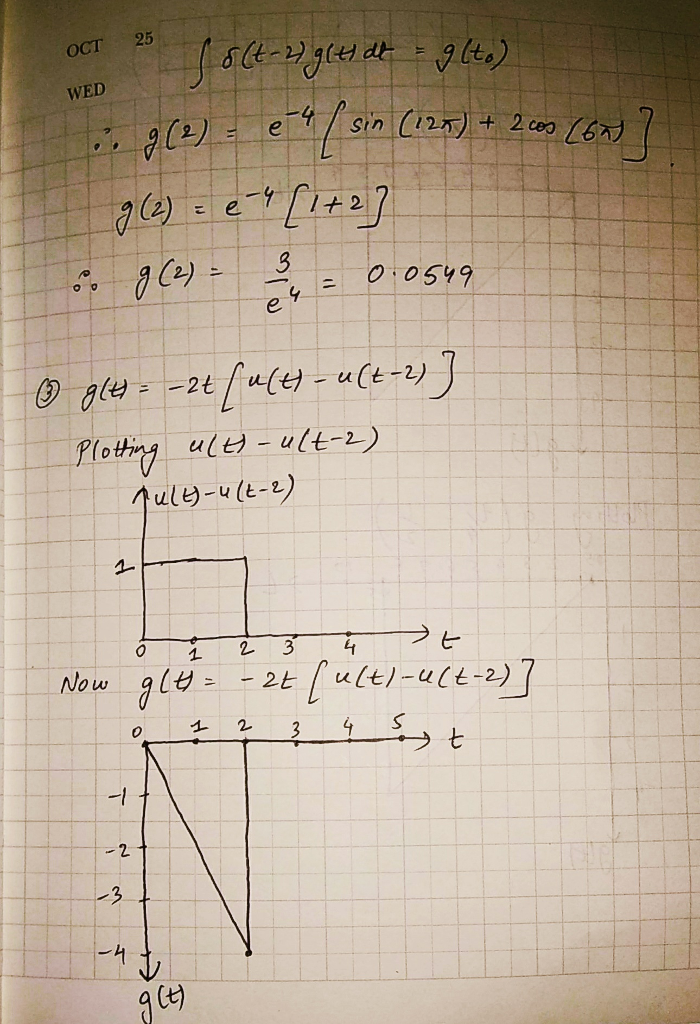 OCT 25
WED
∫ δ(t-2) g(t) dt = g(t₀)
∴ g(2) = e⁻⁴ [ sin (12π) + 2 cos (6π) ]
g(2) = e⁻⁴ [1+2]
∴ g(2) = 3/e⁴ = 0.0549
③ g(t) = -2t [ u(t) - u(t-2) ]
Plotting u(t) - u(t-2)
u(t)-u(t-2)
1
0 1 2 3 4 t
Now g(t) = -2t [ u(t)-u(t-2) ]
0 1 2 3 4 5 t
-1
-2
-3
-4
g(t)